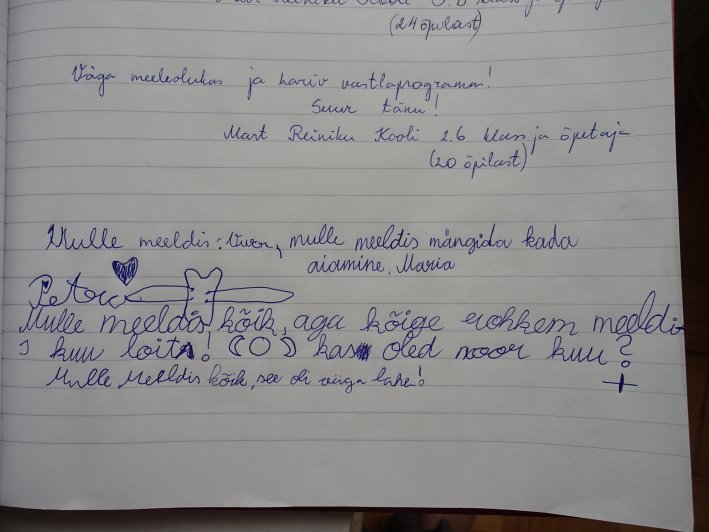 (24 õpilast)
Väga meeleolukas ja hariv vastlaprogramm!
Suur tänu!
Mart Reiniku Kooli 2.b klass ja õpetaja
(20 õpilast)
Mulle meeldis: Vurr, mulle meeldis mängida kada
aiamine, Maria
Mulle meeldis kõik, aga kõige rohkem meeldis
kuu loits! kas oled noor kuu?
Mulle Meeldis kõik, see oli väga lahe!